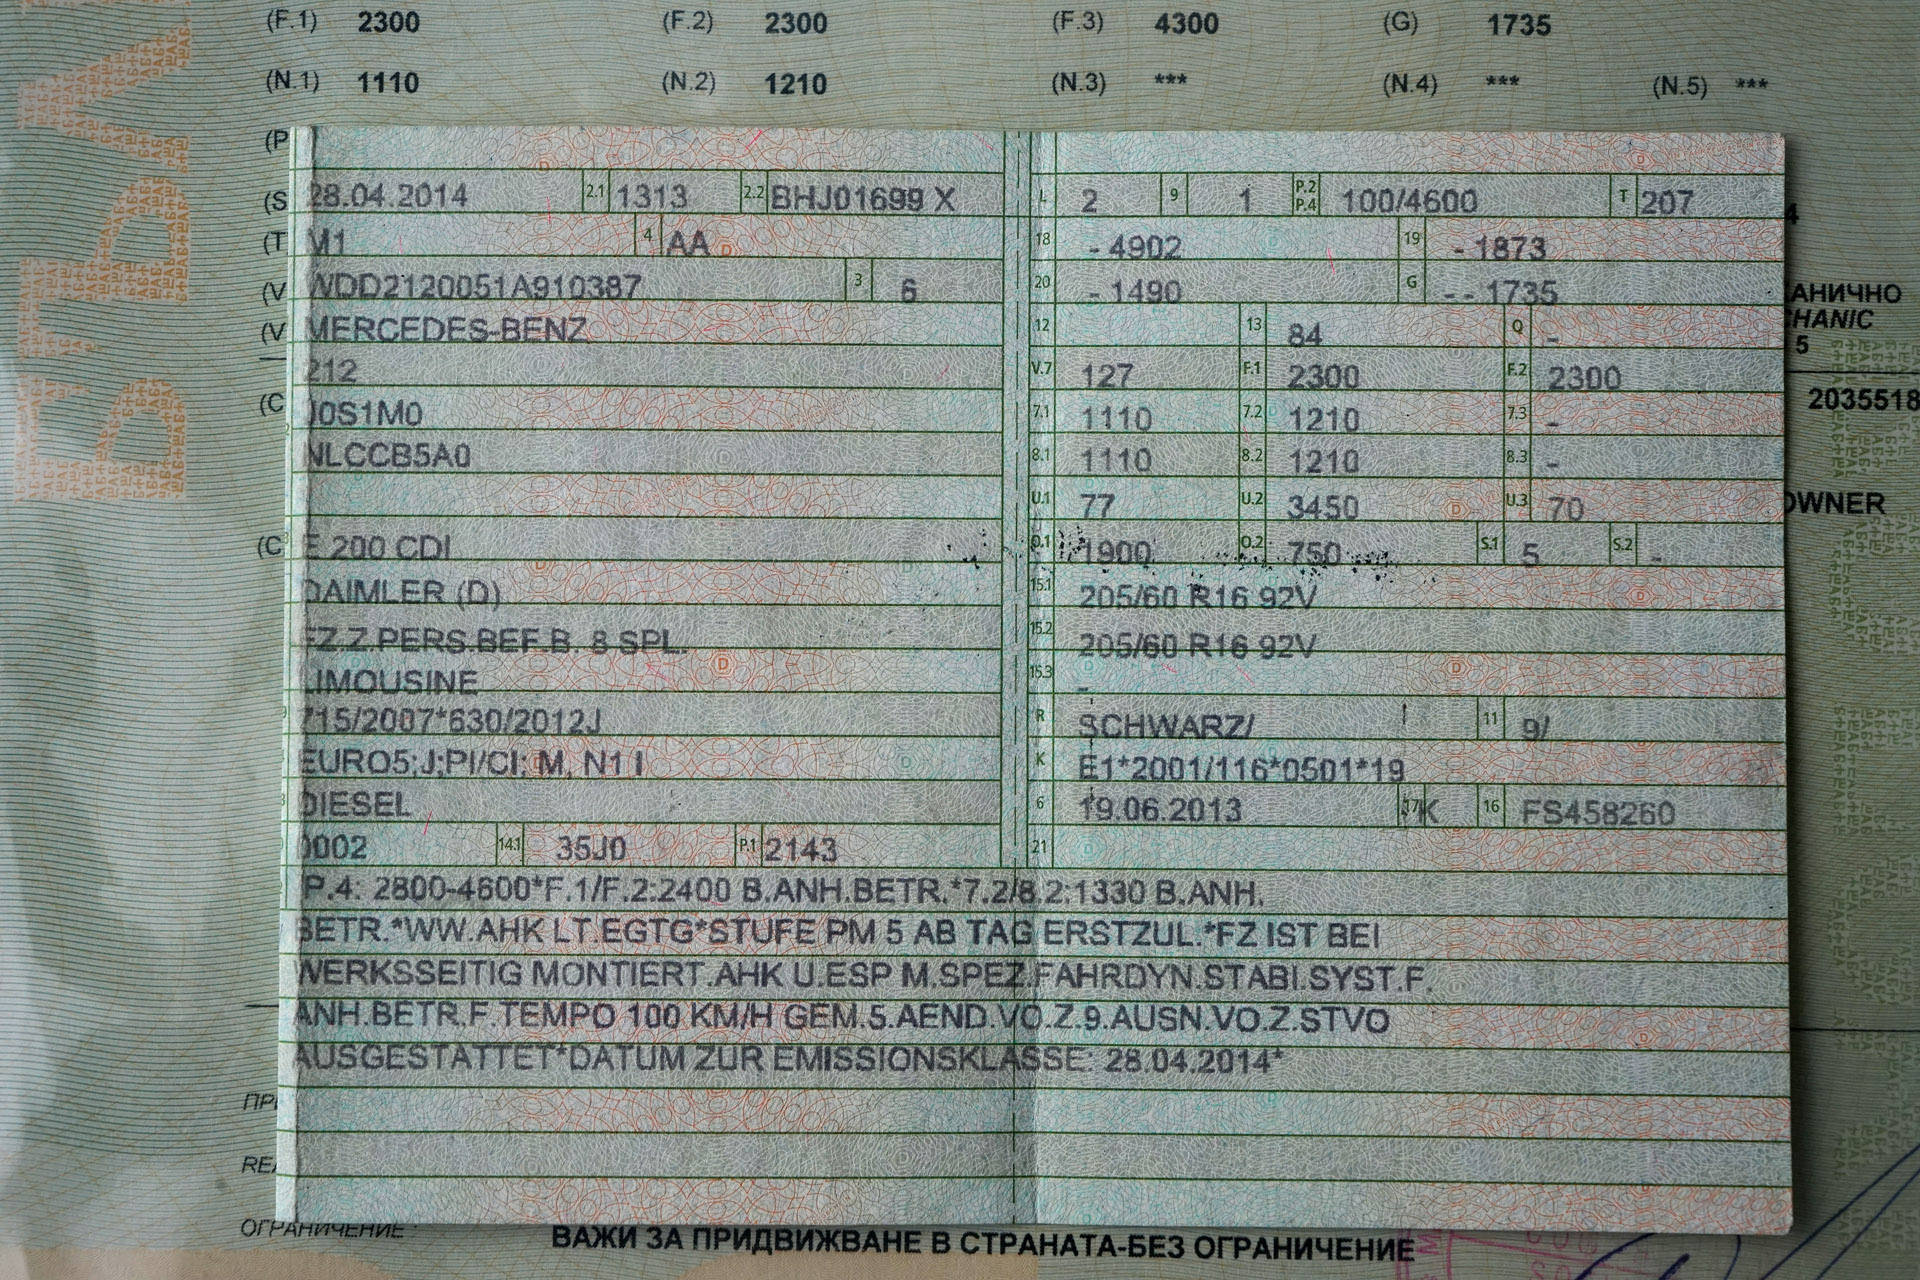 (F.1) 2300 (F.2) 2300 (F.3) 4300 (G) 1735
(N.1) 1110 (N.2) 1210 (N.3) *** (N.4) *** (N.5) ***
(P
(S 28.04.2014 2.1 1313 2.2 BHJ01699 X L 2 9 1 P.2 P.4 100/4600 T 207
4
(T M1 4 AA 18 - 4902 19 - 1873
(V WDD2120051A910387 3 6 20 - 1490 G - - 1735
АНИЧНО
(V MERCEDES-BENZ 12 13 84 Q -
CHANIC
5
212 V.7 127 F.1 2300 F.2 2300
(C 00S1M0 7.1 1110 7.2 1210 7.3 -
2035518
NLCCB5A0 8.1 1110 8.2 1210 8.3 -
U.1 77 U.2 3450 U.3 70
OWNER
(C E 200 CDI O.1 1900 O.2 750 S.1 5 S.2 -
DAIMLER (D) 15.1 205/60 R16 92V
FZ.Z.PERS.BEF.B. 8 SPL. 15.2 205/60 R16 92V
LIMOUSINE 15.3 -
715/2007*630/2012J R SCHWARZ/ 11 9/
EURO5;J;PI/CI; M, N1 I K E1*2001/116*0501*19
DIESEL 6 19.06.2013 17 K 16 FS458260
0002 14.1 35J0 P.1 2143 21
P.4: 2800-4600*F.1/F.2:2400 B.ANH.BETR.*7.2/8.2:1330 B.ANH.
BETR.*WW.AHK LT.EGTG*STUFE PM 5 AB TAG ERSTZUL.*FZ IST BEI
WERKSSEITIG MONTIERT.AHK U.ESP M.SPEZ.FAHRDYN.STABI.SYST.F.
ANH.BETR.F.TEMPO 100 KM/H GEM.5.AEND.VO.Z.9.AUSN.VO.Z.STVO
AUSGESTATTET*DATUM ZUR EMISSIONSKLASSE: 28.04.2014*
ПР
REA
ОГРАНИЧЕНИЕ ВАЖИ ЗА ПРИДВИЖВАНЕ В СТРАНАТА-БЕЗ ОГРАНИЧЕНИЕ